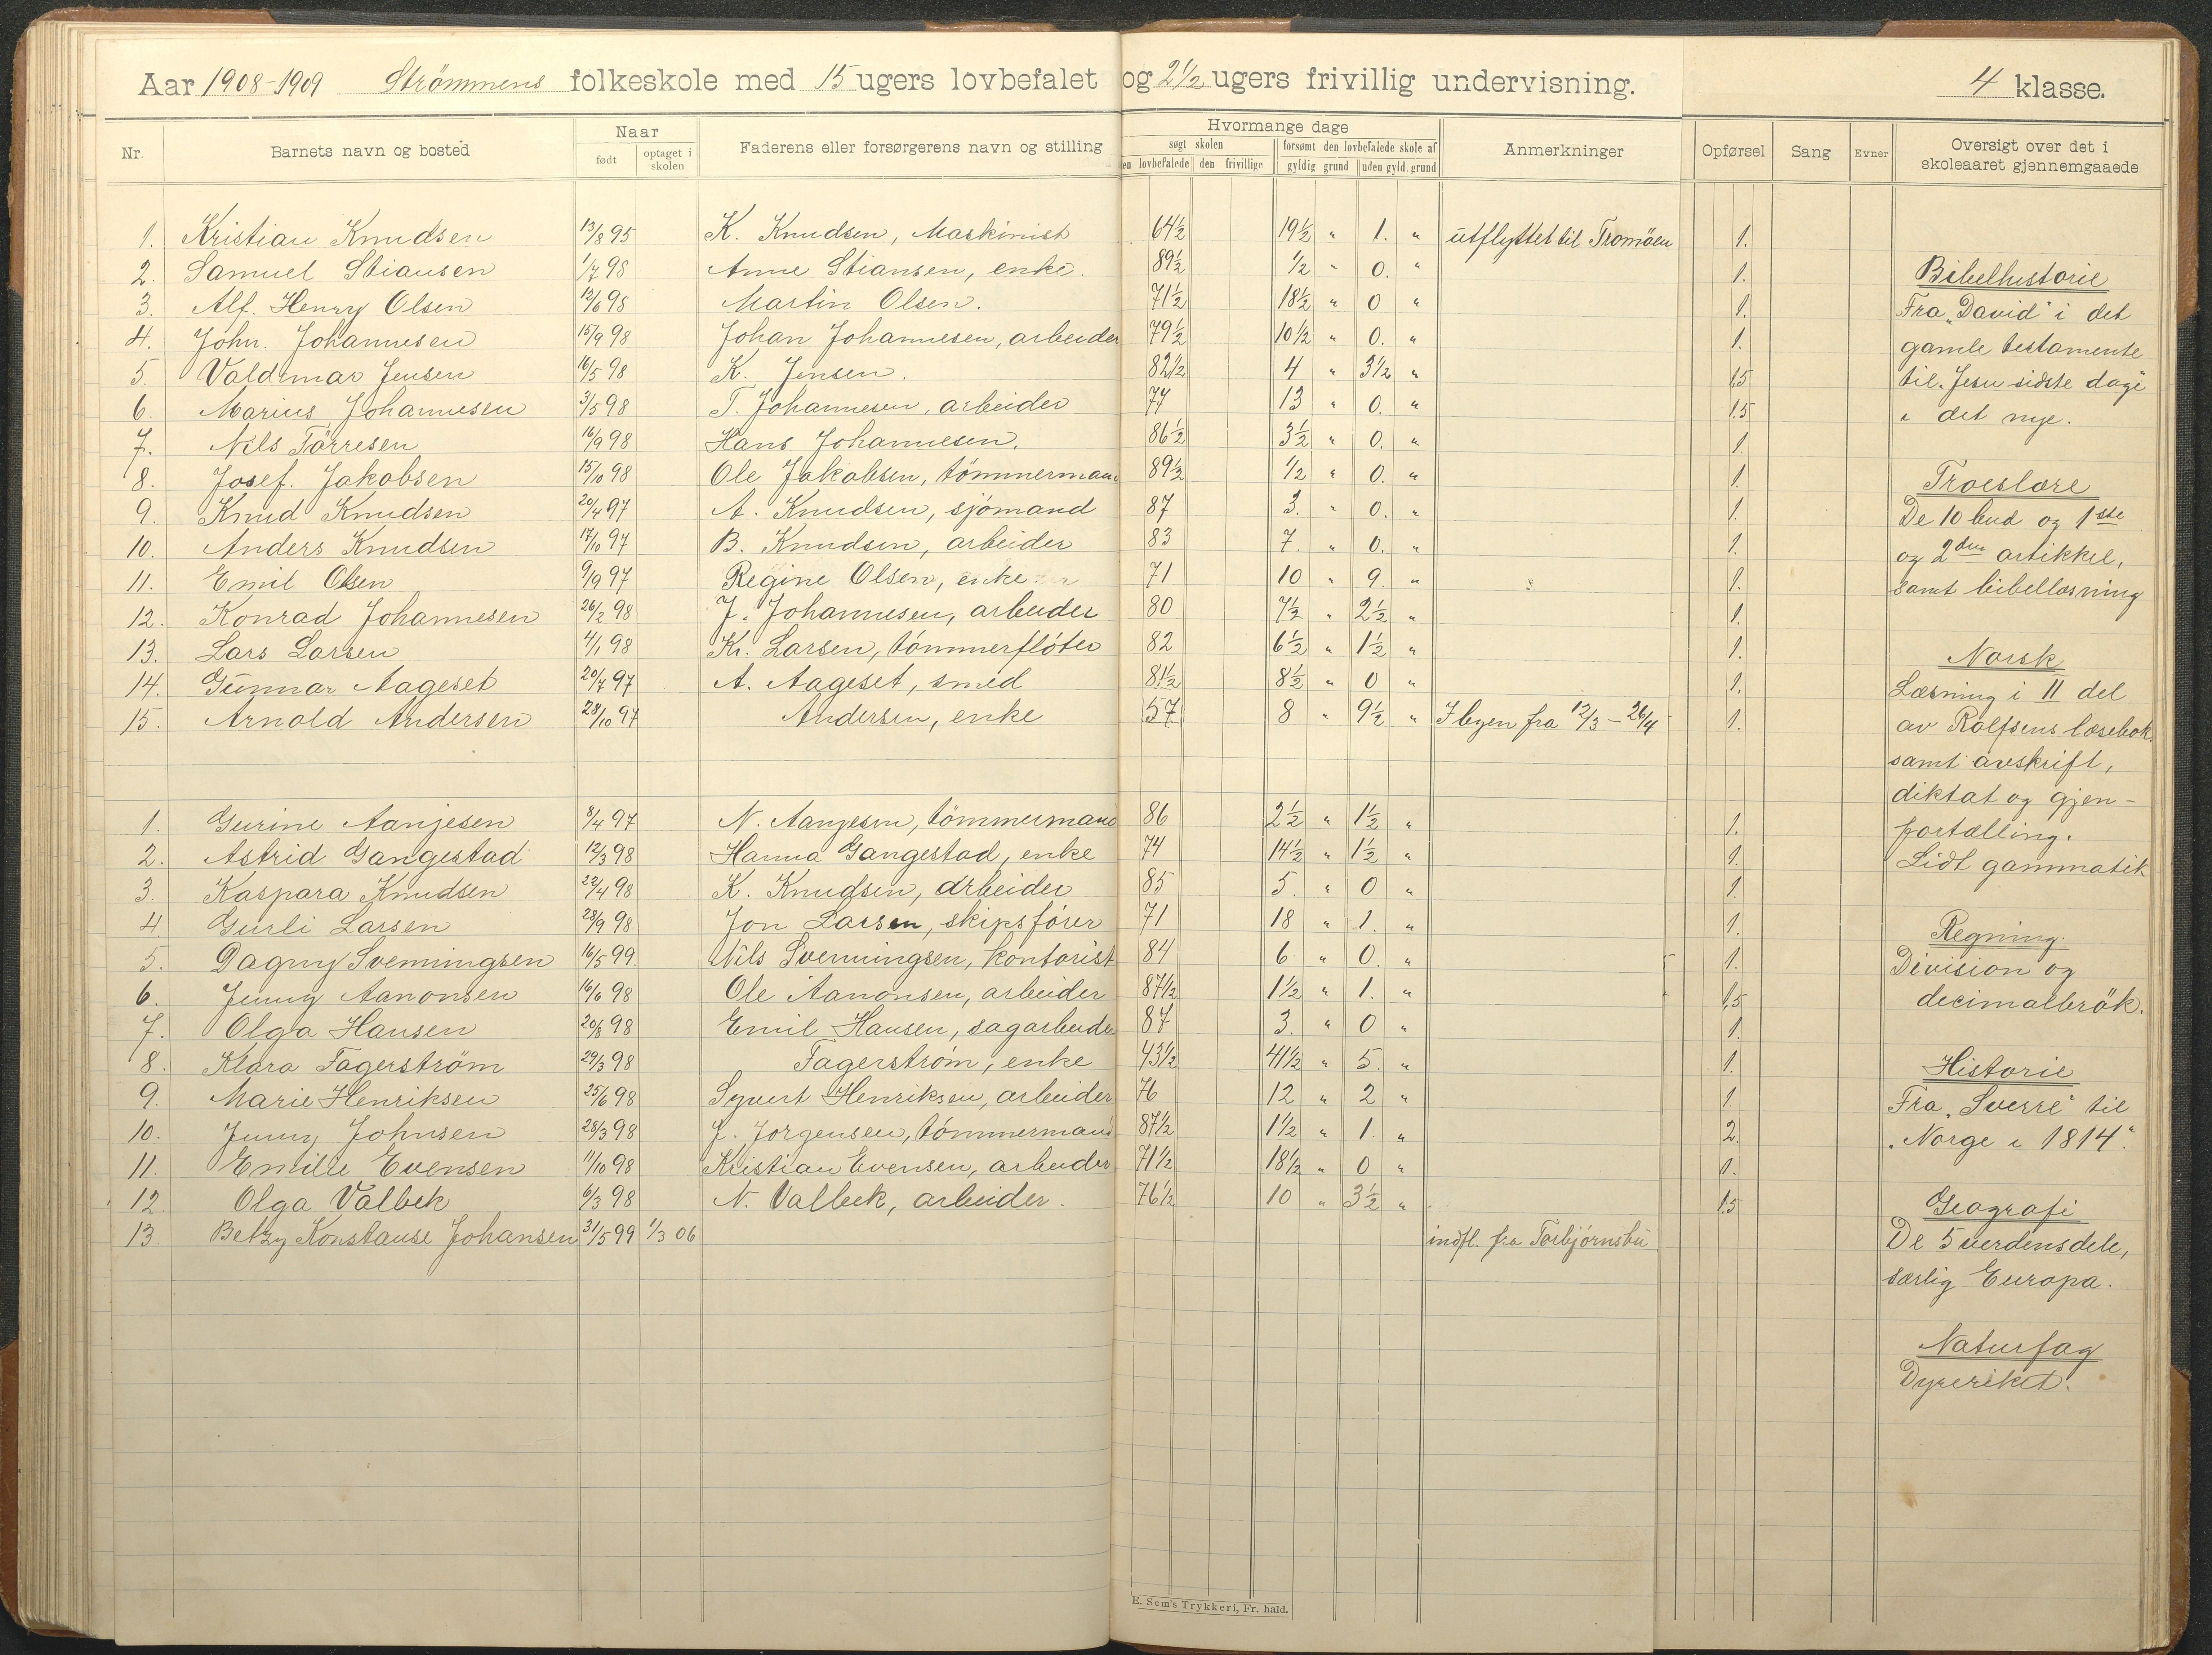 Aar 1908-1909 Strömmens folkeskole med 15 ugers lovbefalet og 2½ ugers frivillig undervisning. 4 klasse.
Nr. Barnets navn og bosted Naar født optaget i skolen Faderens eller forsørgerens navn og stilling Hvormange dage søgt skolen den lovbefalede den frivillige forsømt den lovbefalede skole af gyldig grund uden gyld. grund Anmerkninger Opførsel Sang Evner Oversigt over det i skoleaaret gjennemgaaede
1. Kristian Knudsen 13/8 95 K. Knudsen, Maskinist 64½ 19½ " 1. " utflyttet til Tromöen 1.
2. Samuel Stiansen 1/7 98 Anne Stiansen, enke. 89½ ½ " 0. " 1.
3. Alf. Henry Olsen 12/6 98 Martin Olsen. 71½ 18½ " 0 " 1.
4. John. Johannesen 15/9 98 Johan Johannesen, arbeider 79½ 10½ " 0. " 1.
5. Valdemar Jensen 16/5 98 K. Jensen. 82½ 4 " 3½ " 1.5
6. Marius Johannesen 3/5 98 T. Johannesen, arbeider 77 13 " 0. " 1.5
7. Nils Törresen 16/9 98 Hans Johannesen. 86½ 3½ " 0. " 1.
8. Josef. Jakobsen 15/10 98 Ole Jakobsen, tömmermann 89½ ½ " 0. " 1.
9. Knud Knudsen 20/4 97 A. Knudsen, sjömand 87 3. " 0. " 1.
10. Anders Knudsen 17/10 97 B. Knudsen, arbeider 83 7. " 0. " 1.
11. Emil Olsen 9/9 97 Regine Olsen, enke 71 10 " 9. " 1.
12. Konrad Johannesen 26/2 98 J. Johannesen, arbeider 80 7½ " 2½ " 1.
13. Lars Larsen 4/1 98 Kr. Larsen, tömmerflöter 82 6½ " 1½ " 1.
14. Gunnar Aageset 20/7 97 A. Aageset, smed 81½ 8½ " 0 " 1.
15. Arnold Andersen 28/10 97 Andersen, enke 57 8 " 9½ " I byen fra 12/3 - 26/4 1.
1. Gurine Aanjesen 8/4 97 N. Aanjesen, tömmermand 86 2½ " 1½ " 1.
2. Astrid Gangestad 12/3 98 Hanna Gangestad, enke 74 14½ " 1½ " 1.
3. Kaspara Knudsen 22/4 98 K. Knudsen, arbeider 85 5. " 0 " 1.
4. Gurli Larsen 28/9 98 Jon Larsen, skipsförer 71 18 " 1. " 1.
5. Dagny Svenningsen 16/5 99. Nils Svenningsen, kontorist 84 6 " 0. " 1.
6. Jenny Aanonsen 16/6 98 Ole Aanonsen, arbeider 87½ 1½ " 1. " 1.5
7. Olga Hansen 20/8 98 Emil Hansen, sagarbeider 87 3. " 0 " 1.
8. Klara Fagerström 29/3 98 Fagerström, enke 43½ 41½ " 5. " 1.
9. Marie Henriksen 25/6 98 Syvert Henriksen, arbeider 76 12 " 2 " 1.
10. Jenny Johnsen 28/3 98 J. Jorgensen, tömmermand 87½ 1½ " 1. " 2.
11. Emilie Evensen 11/10 98 Kristian Evensen, arbeider 71½ 18½ " 0 " 1.
12. Olga Valbek 6/3 98 N. Valbek, arbeider. 76½ 10 " 3½ " 1.5
13. Betzy Konstanse Johansen 31/5 99 1/3 06 indfl. fra Torbjörnsbu
Bibelhistorie
Fra „David" i det
gamle testamente
til „Jesu sidste dage"
i det nye.
Troeslære
De 10 bud og 1ste
og 2den artikkel,
samt bibellæsning
Norsk
Læsning i II del
av Rolfsens læsebok.
samt avskrift,
diktat og gjen-
fortælling.
Lidt gammatik
Regning.
Division og
decimalbrök.
Historie
Fra „Sverre" til
„Norge i 1814."
Geografi
De 5 verdensdele,
særlig Europa.
Naturfag
Dyreriket.
E. Sem's Trykkeri, Fr. hald.